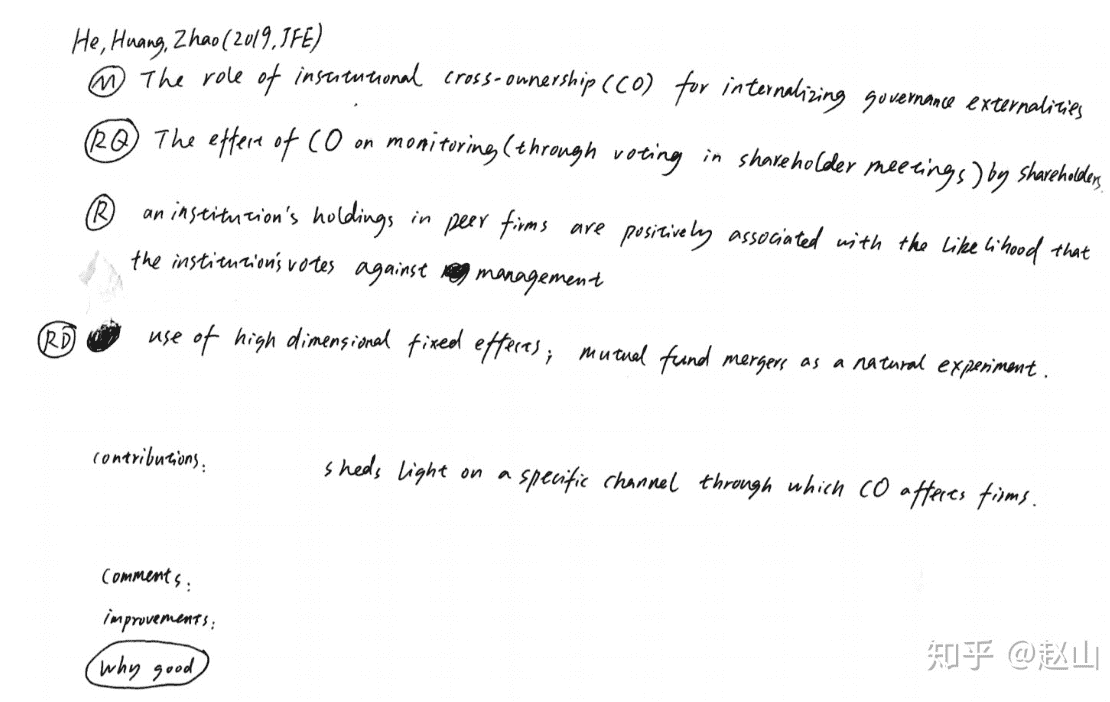 He, Huang, Zhao (2019, JFE)
M The role of institutional cross-ownership (CO) for internalizing governance externalities
RQ The effect of CO on monitoring (through voting in shareholder meetings) by shareholders.
R an institution's holdings in peer firms are positively associated with the likelihood that
the institution's votes against management
RD use of high dimensional fixed effects; mutual fund mergers as a natural experiment.
contributions: sheds light on a specific channel through which CO affects firms.
comments:
improvements:
why good
知乎 @赵山